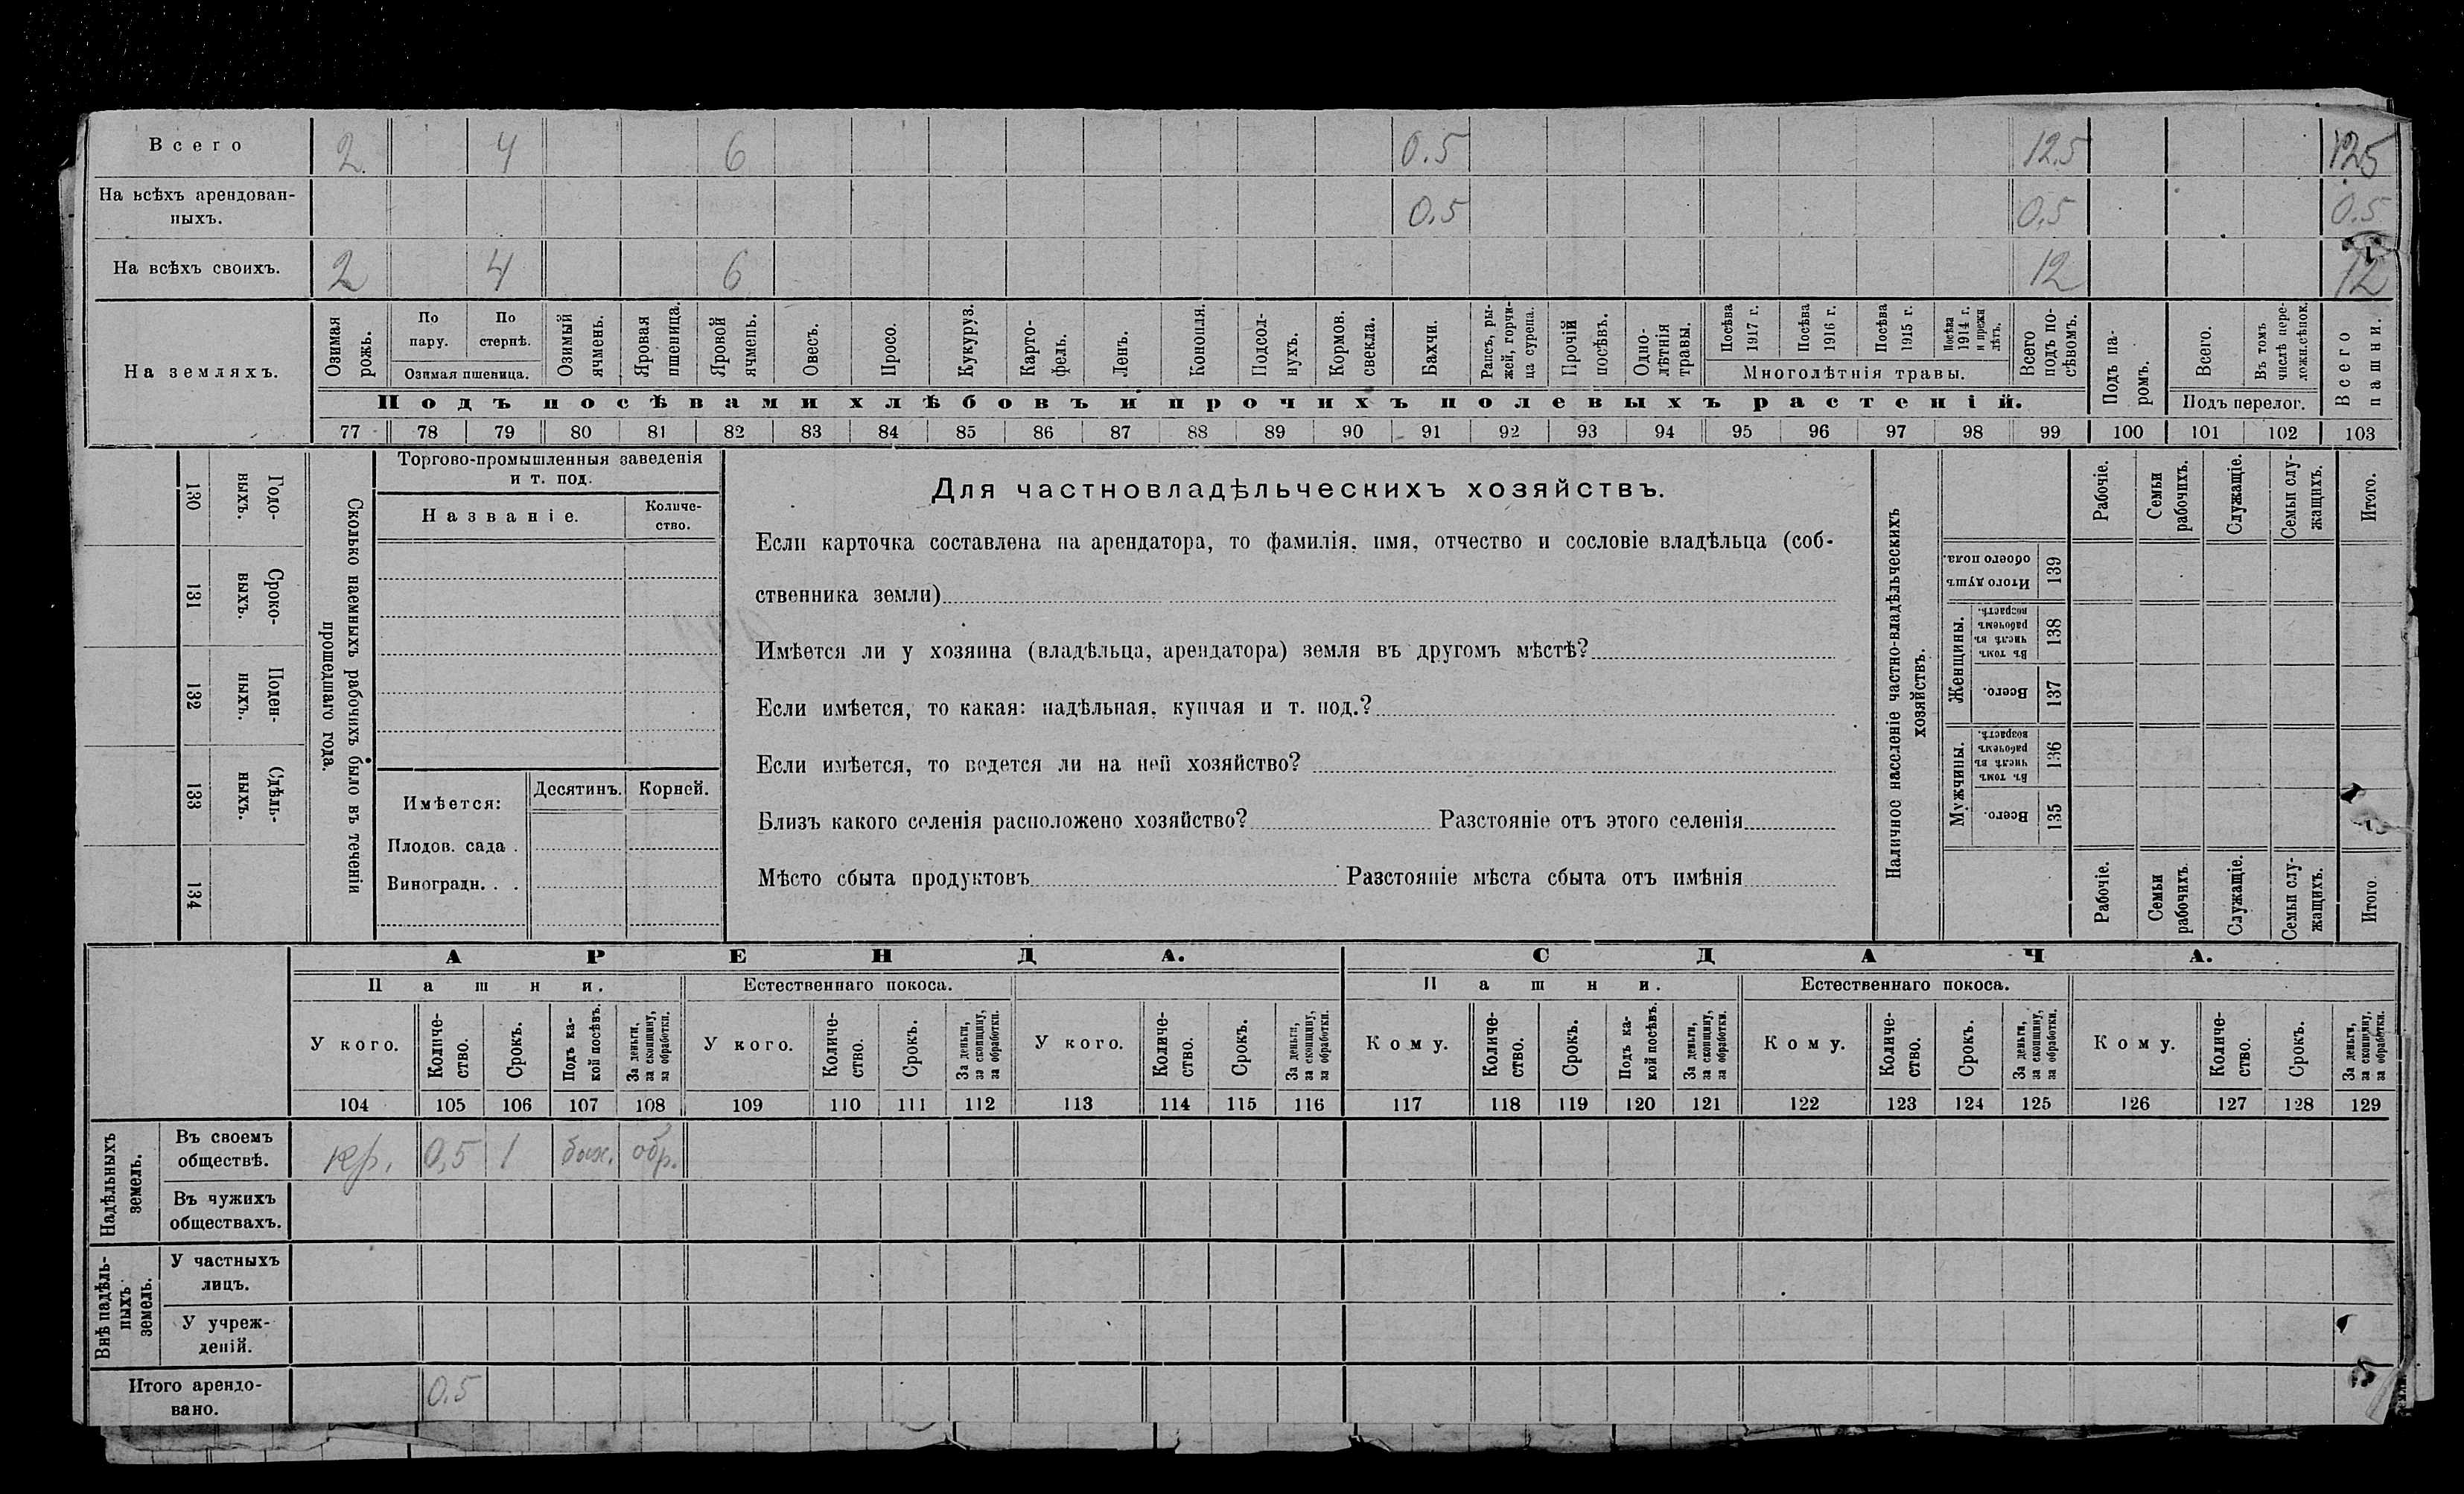 Всего 2 4 6 0.5 12.5 12.5
На всѣхъ арендован-
ныхъ. 0.5 0.5 0.5
На всѣхъ своихъ. 2 4 6 12 12
На земляхъ.
Озимая
рожь.
По
пару.
По
стернѣ.
Озимая пшеница.
Озимый
ячмень.
Яровая
пшеница.
Яровой
ячмень.
Овесъ.
Просо.
Кукуруз.
Карто-
фель.
Ленъ.
Конопля.
Подсол-
нухъ.
Кормов.
свекла.
Бахчи.
Рапсъ, ры-
жей, горчи-
ца сурепа.
Прочій
посѣвъ.
Одно-
лѣтнія
травы.
Посѣва
1917 г.
Посѣва
1916 г.
Посѣва
1915 г.
Посѣва
1914 г.
и прежн
лѣтъ.
Многолѣтнія травы.
Всего
подъ по-
сѣвомъ.
Подъ посѣвами хлѣбовъ и прочихъ полевыхъ растеній.
Подъ па-
ромъ.
Всего.
Въ томъ
числѣ пере-
ложн.сѣнок.
Подъ перелог.
Всего
пашни.
77 78 79 80 81 82 83 84 85 86 87 88 89 90 91 92 93 94 95 96 97 98 99 100 101 102 103
130
Годо-
выхъ.
131
Сроко-
выхъ.
132
Поден-
ныхъ.
133
Сдѣль-
ныхъ.
134
Сколько наемныхъ рабочихъ было въ теченіи
прошедшаго года.
Торгово-промышленныя заведенія
и т. под.
Названіе.
Количе-
ство.
Имѣется: Десятинъ. Корней.
Плодов. сада .
Виноградн. . .
Для частновладѣльческихъ хозяйствъ.
Если карточка составлена на арендатора, то фамилія, имя, отчество и сословіе владѣльца (соб-
ственника земли)
Имѣется ли у хозяина (владѣльца, арендатора) земля въ другомъ мѣстѣ?
Если имѣется, то какая: надѣльная, купчая и т. под.?
Если имѣется, то ведется ли на ней хозяйство?
Близъ какого селенія расположено хозяйство? Разстояніе отъ этого селенія
Мѣсто сбыта продуктовъ Разстояніе мѣста сбыта отъ имѣнія
Наличное населеніе частно-владѣльческихъ
хозяйствъ.
Рабочіе.
Семьи
рабочихъ.
Служащіе.
Семьи слу-
жащихъ.
Итого.
Итого душъ
обоего пола.
139
Женщины.
Въ томъ
числѣ въ
рабочемъ
возрастѣ.
138
Всего.
137
Мужчины.
Въ томъ
числѣ въ
рабочемъ
возрастѣ.
136
Всего.
135
Рабочіе.
Семьи
рабочихъ.
Служащіе.
Семьи слу-
жащихъ.
Итого
АРЕНДА. СДАЧА.
Пашни. Естественнаго покоса. Пашни. Естественнаго покоса.
У кого.
Количе-
ство.
Срокъ.
Подъ ка-
кой посѣвъ.
За деньги,
за скопщину,
за обработки.
У кого.
Количе-
ство.
Срокъ.
За деньги,
за скопщину,
за обработки.
У кого.
Количе-
ство.
Срокъ.
За деньги,
за скопщину,
за обработки.
Кому.
Количе-
ство.
Срокъ.
Подъ ка-
кой посѣвъ.
За деньги,
за скопщину,
за обработки.
Кому.
Количе-
ство.
Срокъ.
За деньги,
за скопщину,
за обработки.
Кому.
Количе-
ство.
Срокъ.
За деньги,
за скопщину,
за обработки.
104 105 106 107 108 109 110 111 112 113 114 115 116 117 118 119 120 121 122 123 124 125 126 127 128 129
Надѣльныхъ
земель.
Въ своемъ
обществѣ. кр. 0,5 1 бах. обр.
Въ чужихъ
обществахъ.
Внѣ надѣль-
ныхъ
земель.
У частныхъ
лицъ.
У учреж-
деній.
Итого арендо-
вано. 0.5